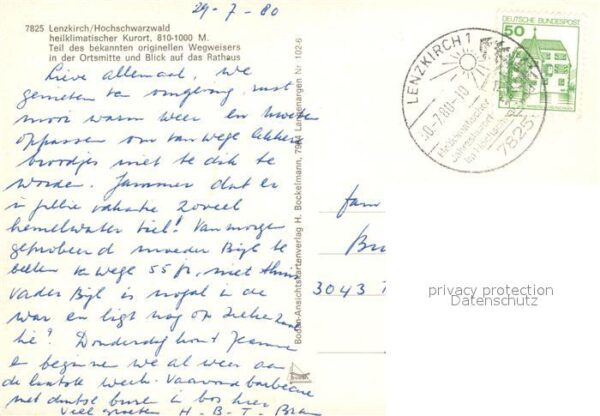 29-7-80
7825 Lenzkirch/Hochschwarzwald
heilklimatischer Kurort, 810-1000 M.
Teil des bekannten originellen Wegweisers
in der Ortsmitte und Blick auf das Rathaus
Lieve allemaal, We
genieten van omgeving, rust
mooi warm weer en moeten
oppassen om vanwege lekkere
broodjes niet te dik te
worden. Jammer dat er
in jullie vakantie zoveel
hemelwater viel! Van morgen
geprobeerd moeder Bijl te
bellen vanwege 55 jr, niet thuis
Vader Bijl is nogal in de
war en ligt nog op
Donderdag komt
en beginnen we al weer aan
de laatste week. Vanavond barbecue
met duitse buren in bos hier
Veel groeten H-B-T-
Bodan-Ansichtskartenverlag H. Bockelmann, 7994 Langenargen Nr. 102-6
fam
3043
DEUTSCHE BUNDESPOST
50
LENZKIRCH 1
30-7.80-10
Heilklimatischer
Jahreskurort
im Hochschwarzwald
7825
privacy protection
Datenschutz